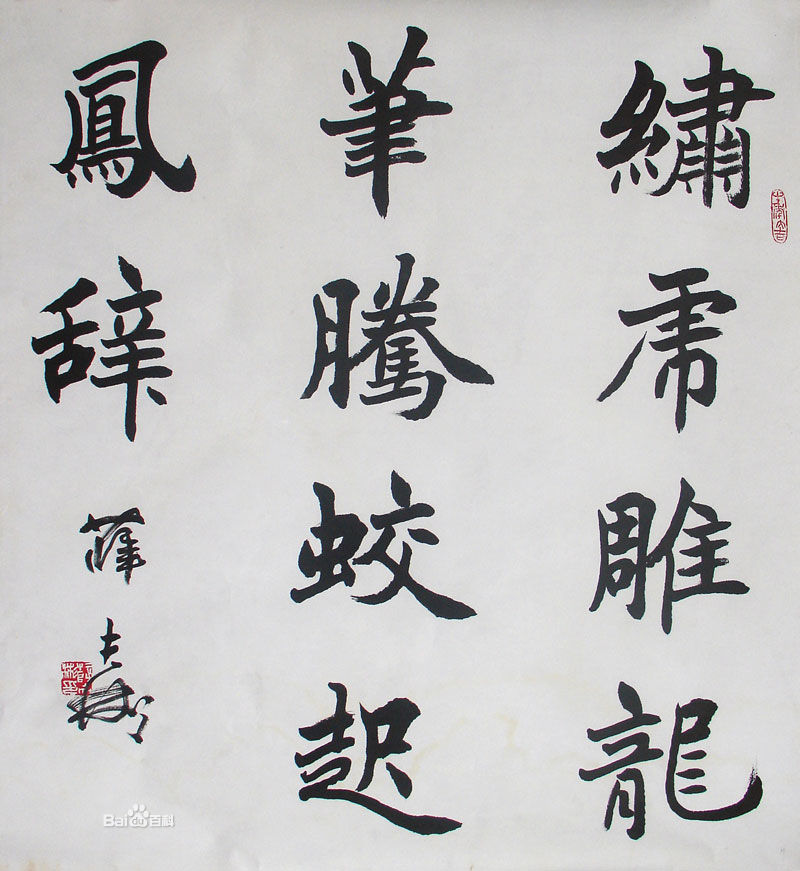 繡虎雕龍
筆騰蛟起
鳳辭
薛夫彬
Bai百科